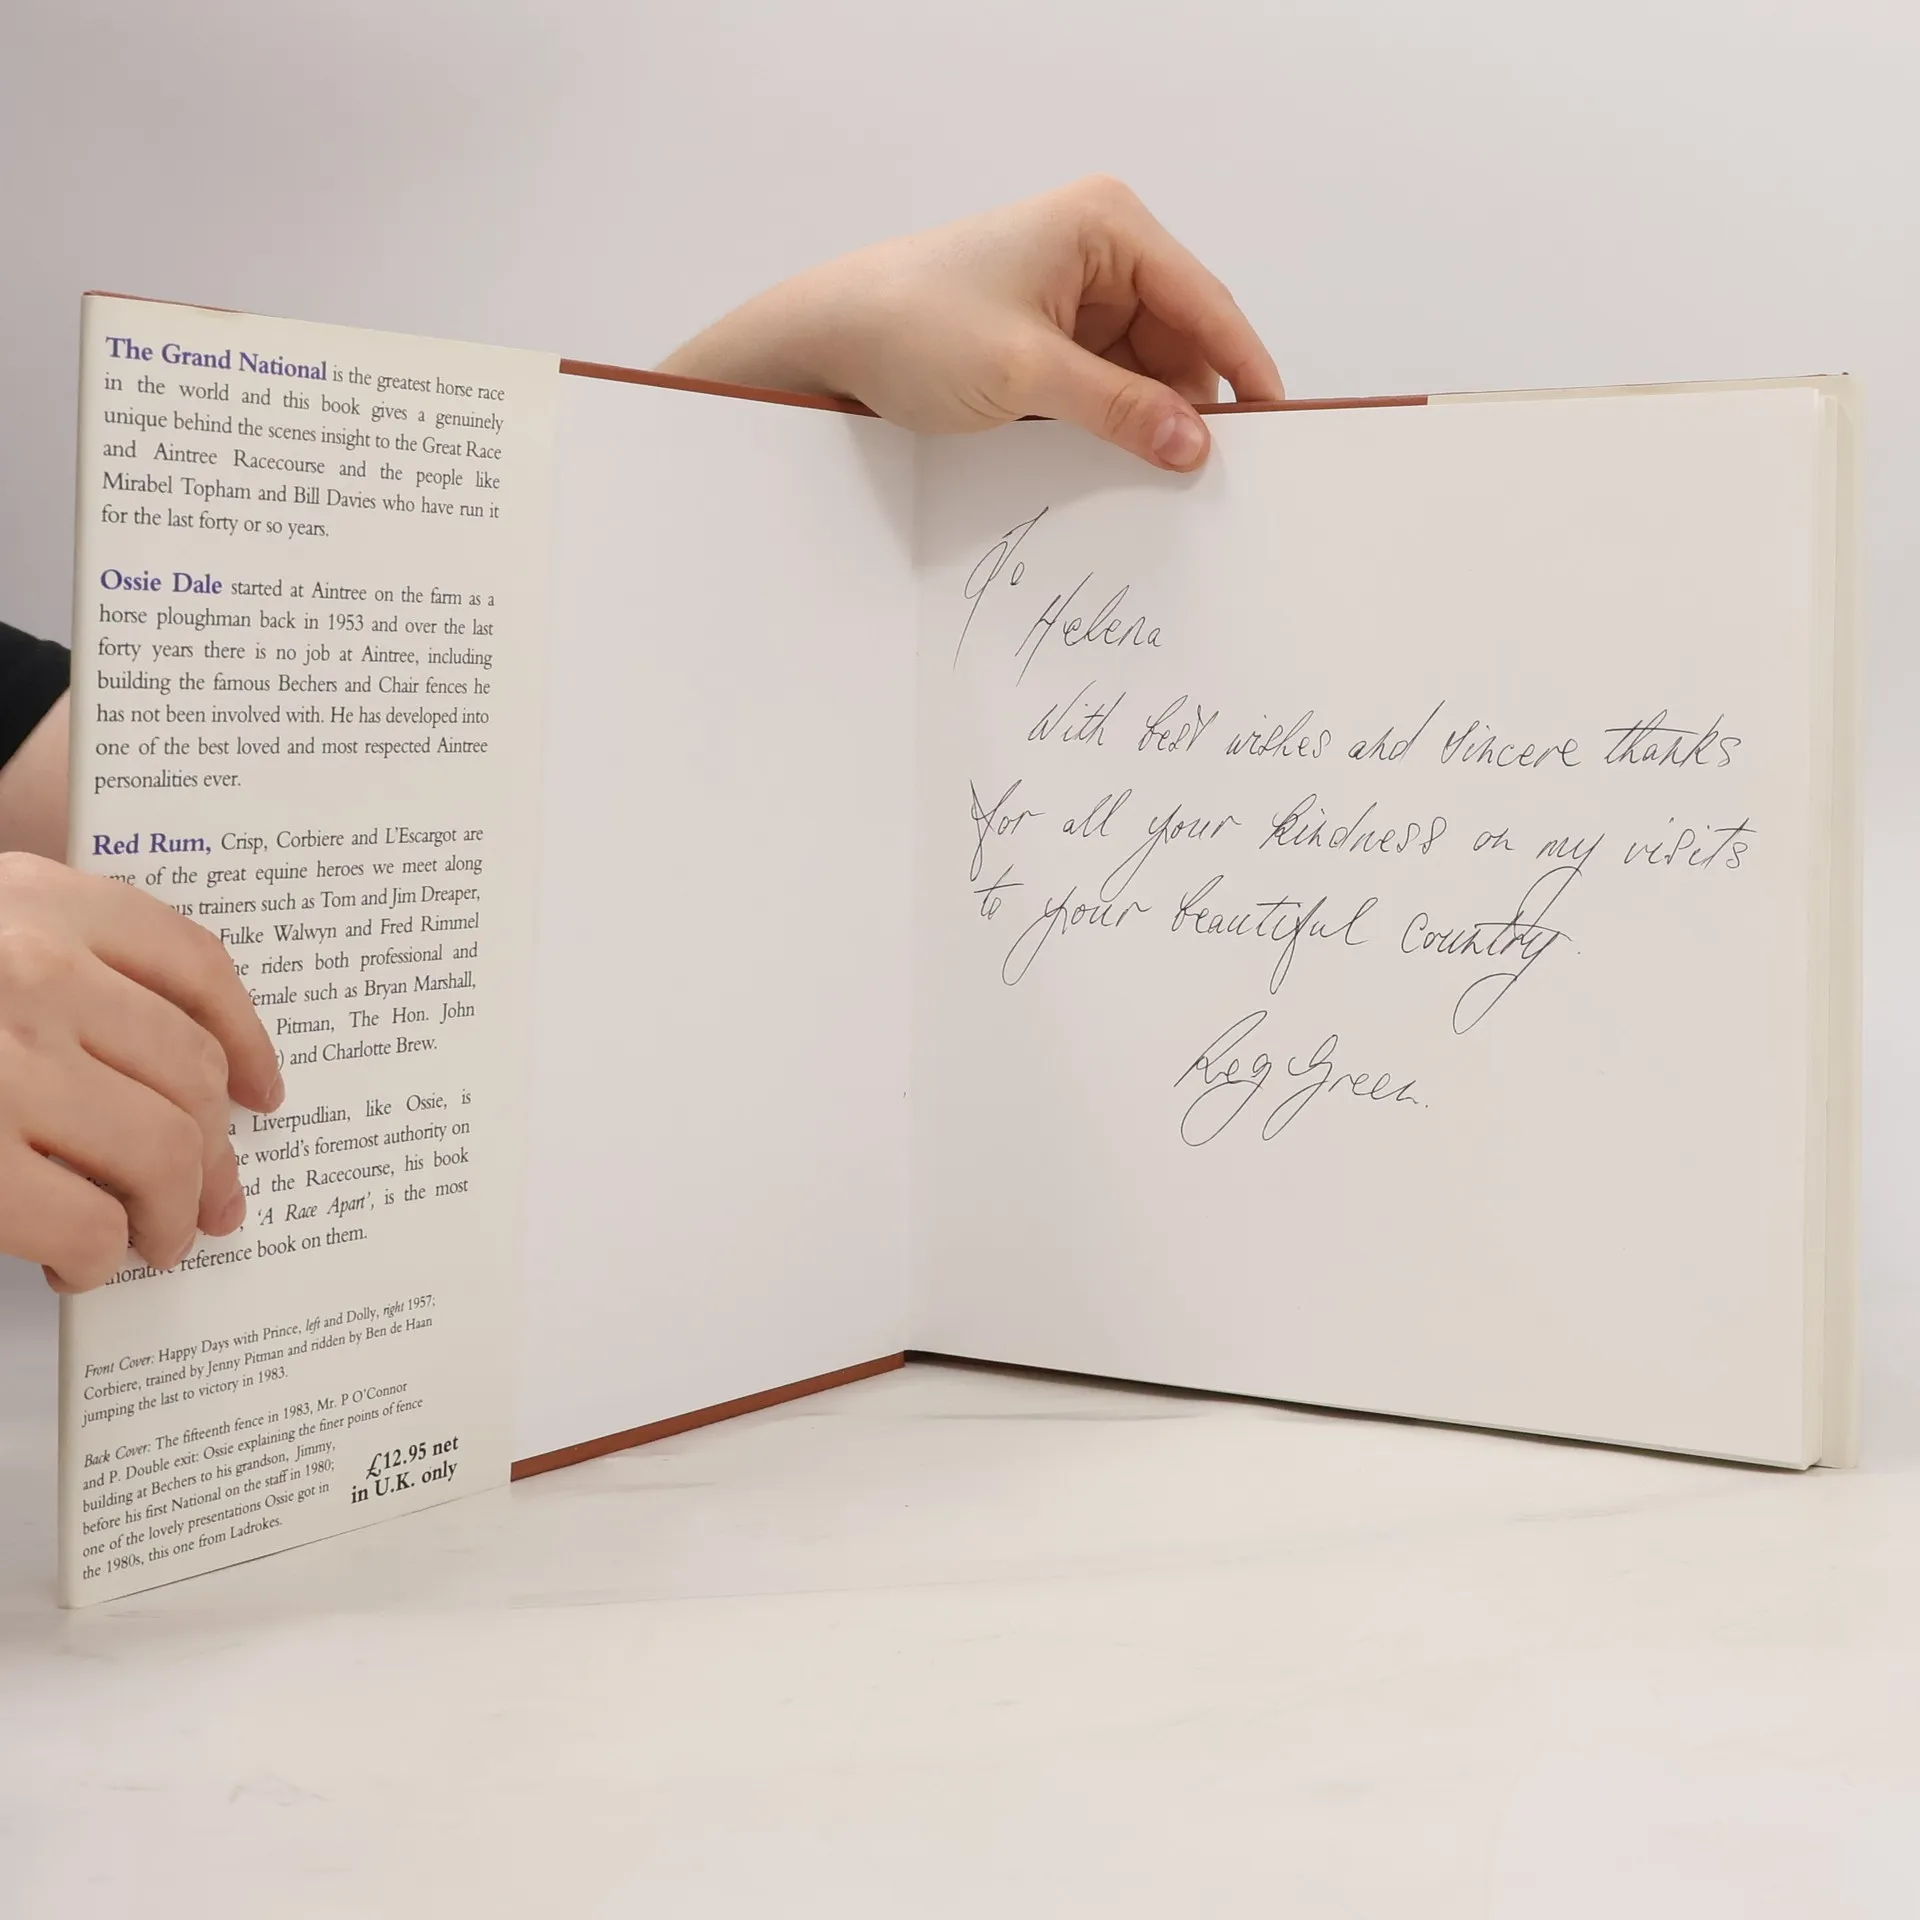 The Grand National is the greatest horse race
in the world and this book gives a genuinely
unique behind the scenes insight to the Great Race
and Aintree Racecourse and the people like
Mirabel Topham and Bill Davies who have run it
for the last forty or so years.
Ossie Dale started at Aintree on the farm as a
horse ploughman back in 1953 and over the last
forty years there is no job at Aintree, including
building the famous Bechers and Chair fences he
has not been involved with. He has developed into
one of the best loved and most respected Aintree
personalities ever.
Red Rum, Crisp, Corbiere and L'Escargot are
of the great equine heroes we meet along
trainers such as Tom and Jim Dreaper,
Fulke Walwyn and Fred Rimmel
riders both professional and
female such as Bryan Marshall,
Pitman, The Hon. John
and Charlotte Brew.
a Liverpudlian, like Ossie, is
world's foremost authority on
the Racecourse, his book
'A Race Apart', is the most
reference book on them.
Front Cover: Happy Days with Prince, left and Dolly, right 1957;
Corbiere, trained by Jenny Pitman and ridden by Ben de Haan
jumping the last to victory in 1983.
Back Cover: The fifteenth fence in 1983, Mr. P O'Connor
and P. Double exit: Ossie explaining the finer points of fence
building at Bechers to his grandson, Jimmy,
before his first National on the staff in 1980;
one of the lovely presentations Ossie got in
the 1980s, this one from Ladrokes.
£12.95 net
in U.K. only
To
Helena
With best wishes and sincere thanks
for all your kindness on my visits
to your beautiful country.
Reg Green.